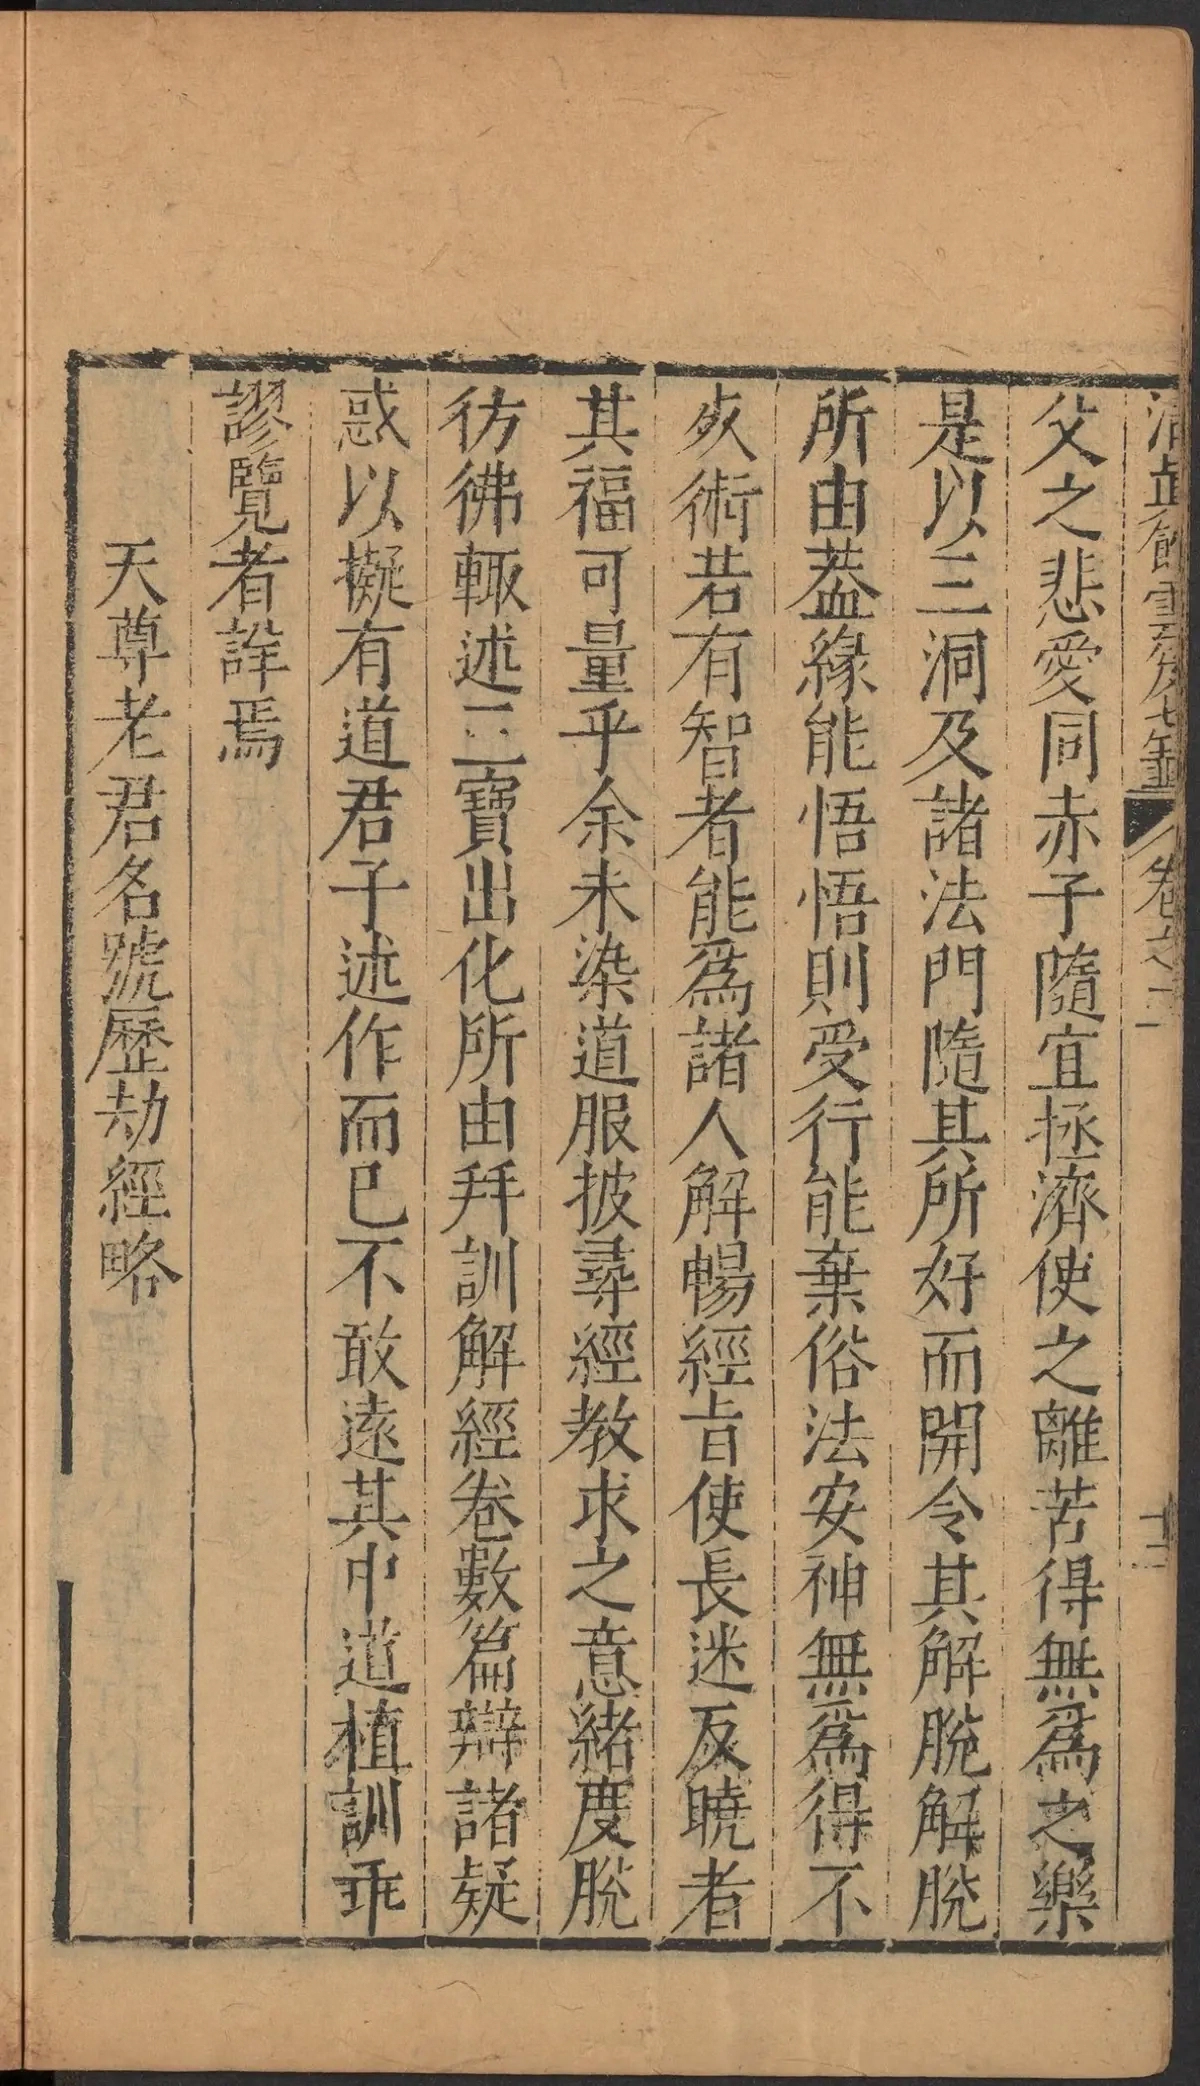 清眞館雲笈七籤 卷之三 十三
父之悲愛同赤子隨宜拯濟使之離苦得無爲之樂
是以三洞及諸法門隨其所好而開令其解脫解脫
所由葢緣能悟悟則受行能棄俗法安神無爲得不
死術若有智者能爲諸人解暢經旨使長迷反曉者
其福可量乎余未染道服披尋經教求之意緒度脫
彷彿輙述三寶出化所由拜訓解經卷數篇辯諸疑
惑以擬有道君子述作而已不敢遠其中道植訓乖
謬覽者詳焉
天尊老君名號歷劫經略